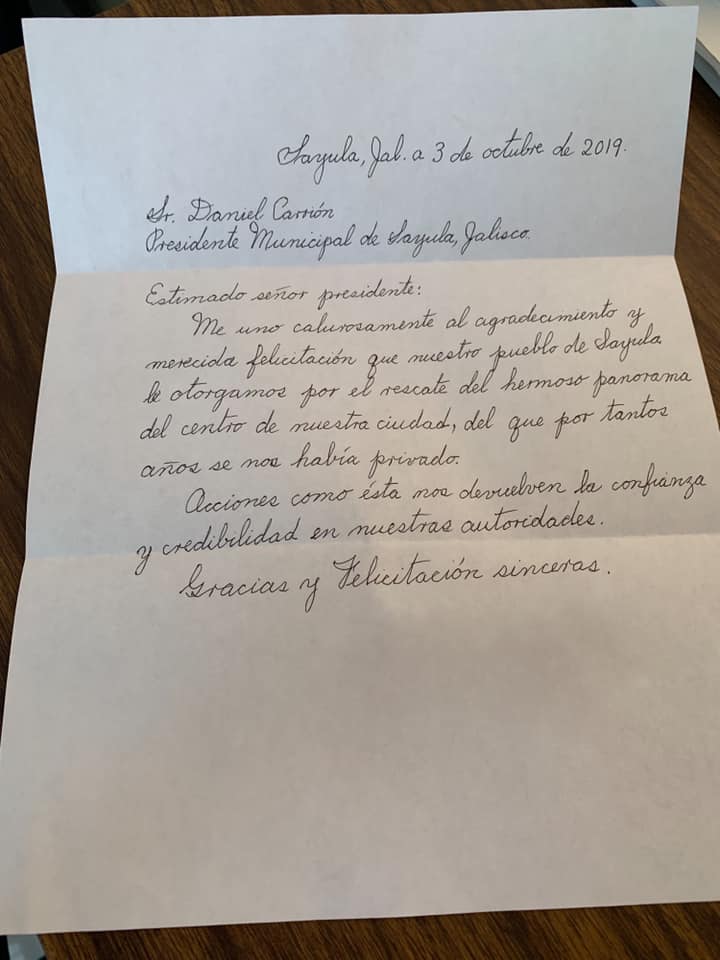 Sayula, Jal. a 3 de octubre de 2019.
Sr. Daniel Carrión
Presidente Municipal de Sayula, Jalisco.
Estimado señor presidente:
Me uno calurosamente al agradecimiento y
merecida felicitación que nuestro pueblo de Sayula
le otorgamos por el rescate del hermoso panorama
del centro de nuestra ciudad, del que por tantos
años se nos había privado.
Acciones como ésta nos devuelven la confianza
y credibilidad en nuestras autoridades.
Gracias y Felicitación sinceras.